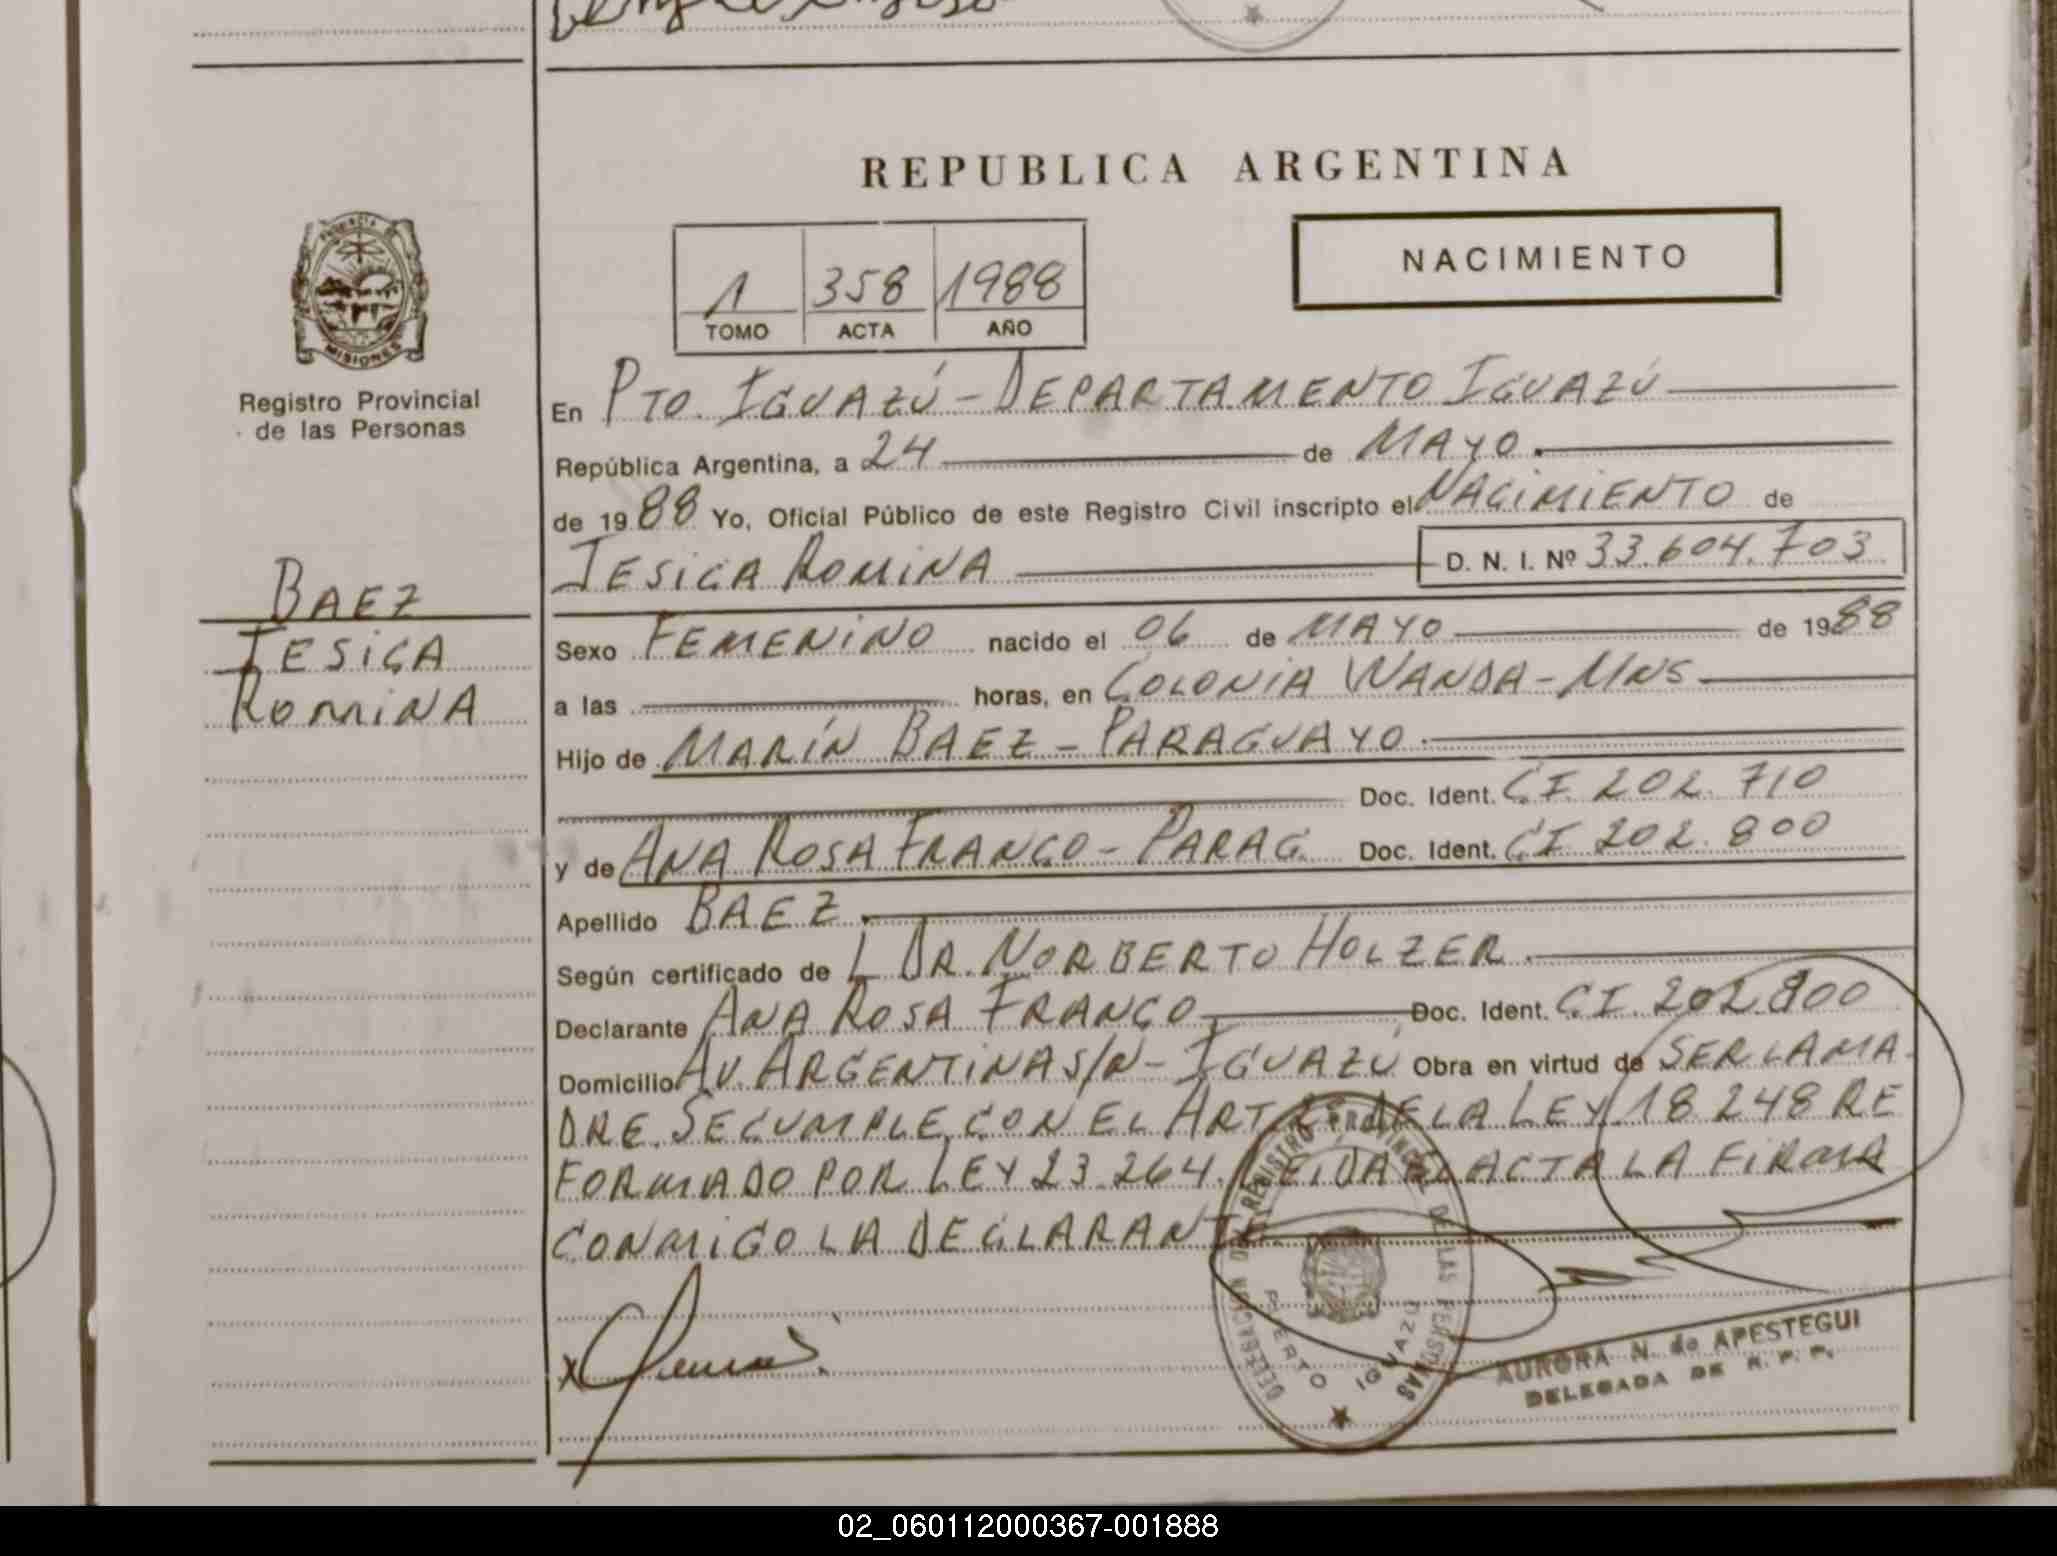 REPUBLICA ARGENTINA
NACIMIENTO
1 358 1988
TOMO ACTA AÑO
PROVINCIA DE
MISIONES
Registro Provincial
de las Personas
BAEZ
JESICA
ROMINA
En PTO. IGUAZÚ - DEPARTAMENTO IGUAZÚ
República Argentina, a 24 de MAYO.
de 1988 Yo, Oficial Público de este Registro Civil inscripto el NACIMIENTO de
JESICA ROMINA D. N. I. Nº 33.604.703
Sexo FEMENINO nacido el 06 de MAYO de 1988
a las horas, en COLONIA WANDA - MNS
Hijo de MARÍN BAEZ - PARAGUAYO.
Doc. Ident. C.I. 202.710
y de ANA ROSA FRANCO - PARAG. Doc. Ident. C.I 202.800
Apellido BAEZ.
Según certificado de L DR. NORBERTO HOLZER.
Declarante ANA ROSA FRANCO Doc. Ident. C.I. 202.800
Domicilio AV. ARGENTINA S/N - IGUAZÚ Obra en virtud de SER LA MA
DRE. SE CUMPLE CON EL ART. DE LA LEY 18.248 RE
FORMADO POR LEY 23.264. LEIDA EL ACTA LA FIRMA
CONMIGO LA DECLARANTE.
DELEGACION DEL REGISTRO PROVINCIAL DE LAS PERSONAS
PUERTO IGUAZU
AURORA N. de APESTEGUI
DELEGADA DE R. P. P.
02_060112000367-001888